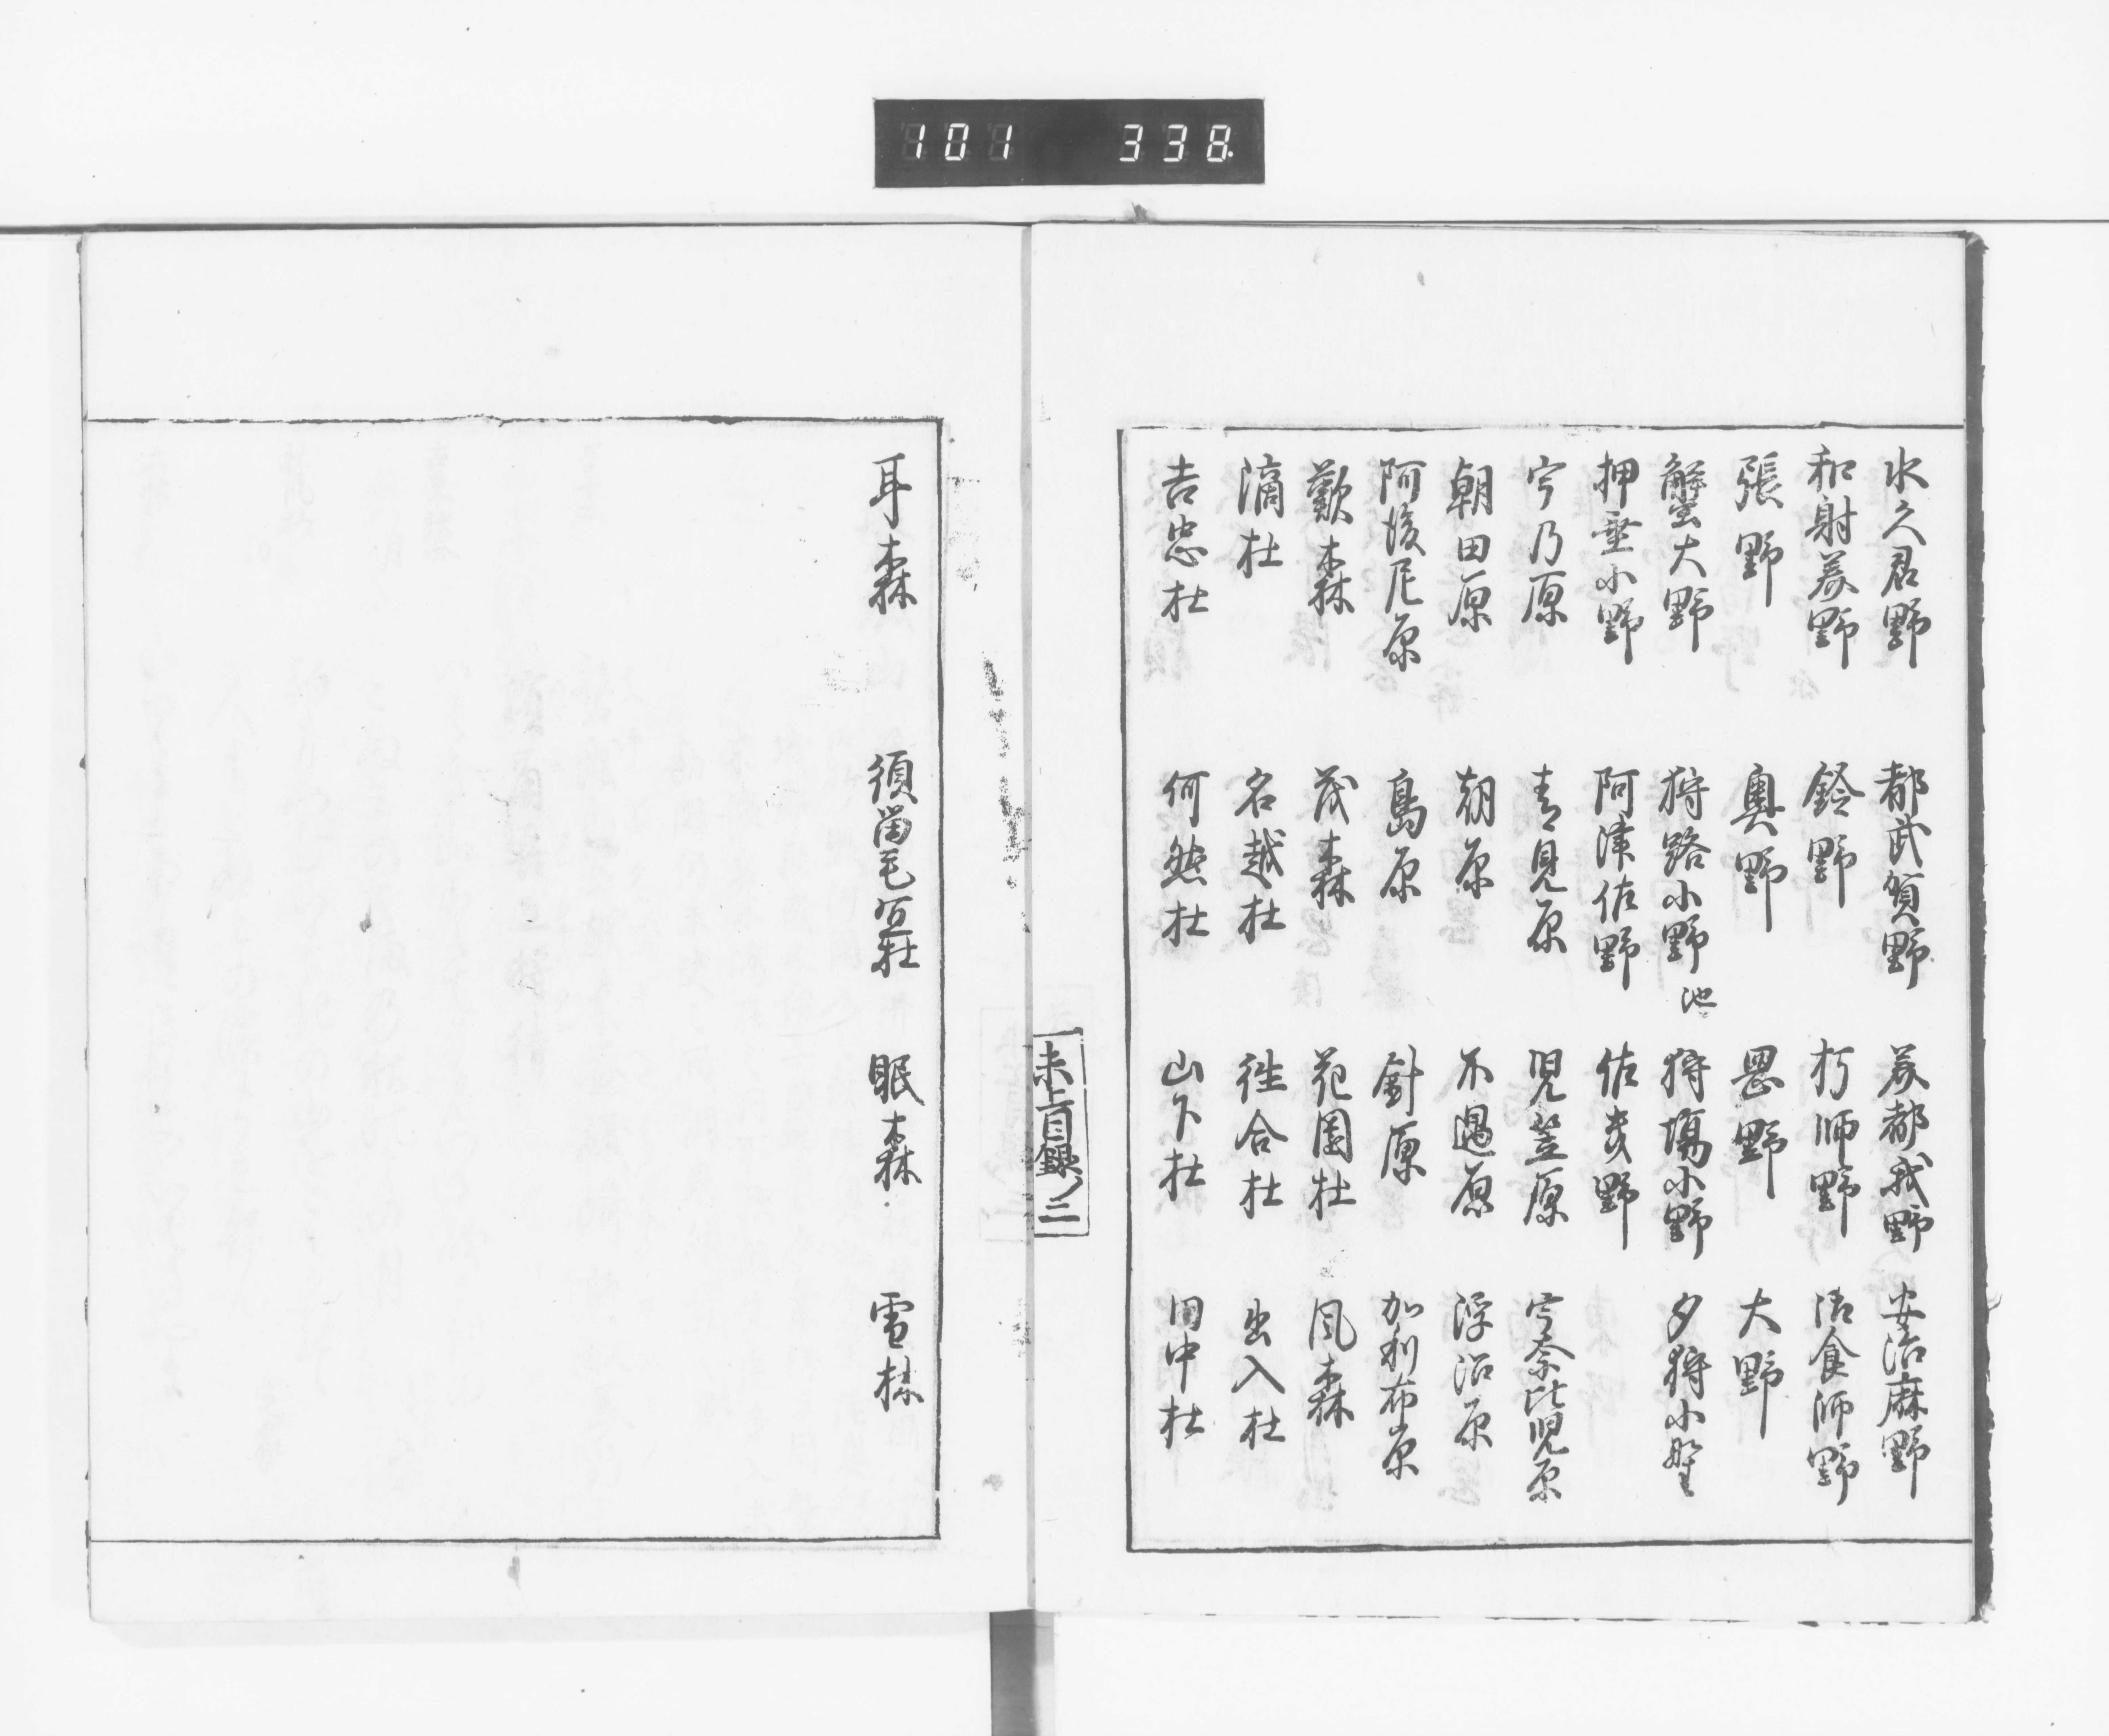 101 338
水久君野 都武賀野 美都我野 安治麻野
和射美野 鈴野 朽師野 活食師野
張野 奥野 思野 大野
蟹大野 狩路小野池 狩場小野 夕狩小野
押垂小野 阿津佐野 佐美野
宇乃原 青見原 児笠原 宇奈比児原
朝田原 朝原 不過原 浮沼原
阿後尼原 島原 針原 加利布原
歎森 茂森 花園杜 風森
滴杜 名越杜 往合杜 出入杜
吉忠杜 何然杜 山下杜 田中杜
未上目録ノ二
耳森 須留毛宜杜 眠森 雪林